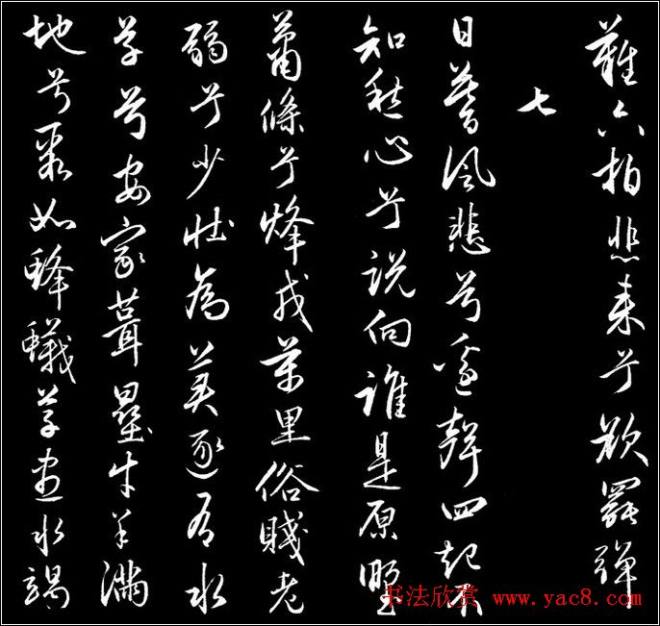 難六拍悲来兮欲罷彈
七
日暮風悲兮邊聲四起不
知愁心兮説向誰是原野
蕭條兮烽戍萬里俗賤老
弱兮少壯為美逐有水
草兮安家葺壘牛羊滿
地兮聚如蜂蟻草盡水竭
书法欣赏 www.yac8.com